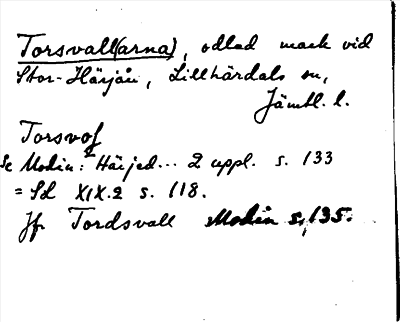 Torsvall(arna), odlad mark vid
Stor-Härjån, Lillhärdals sn,
Jämtl. l.
Torsvof
Se Modin: Härjed... 2 uppl. s. 133
= Sd XIX.2 s. 118.
Jfr Tordsvall Modin s. 135.